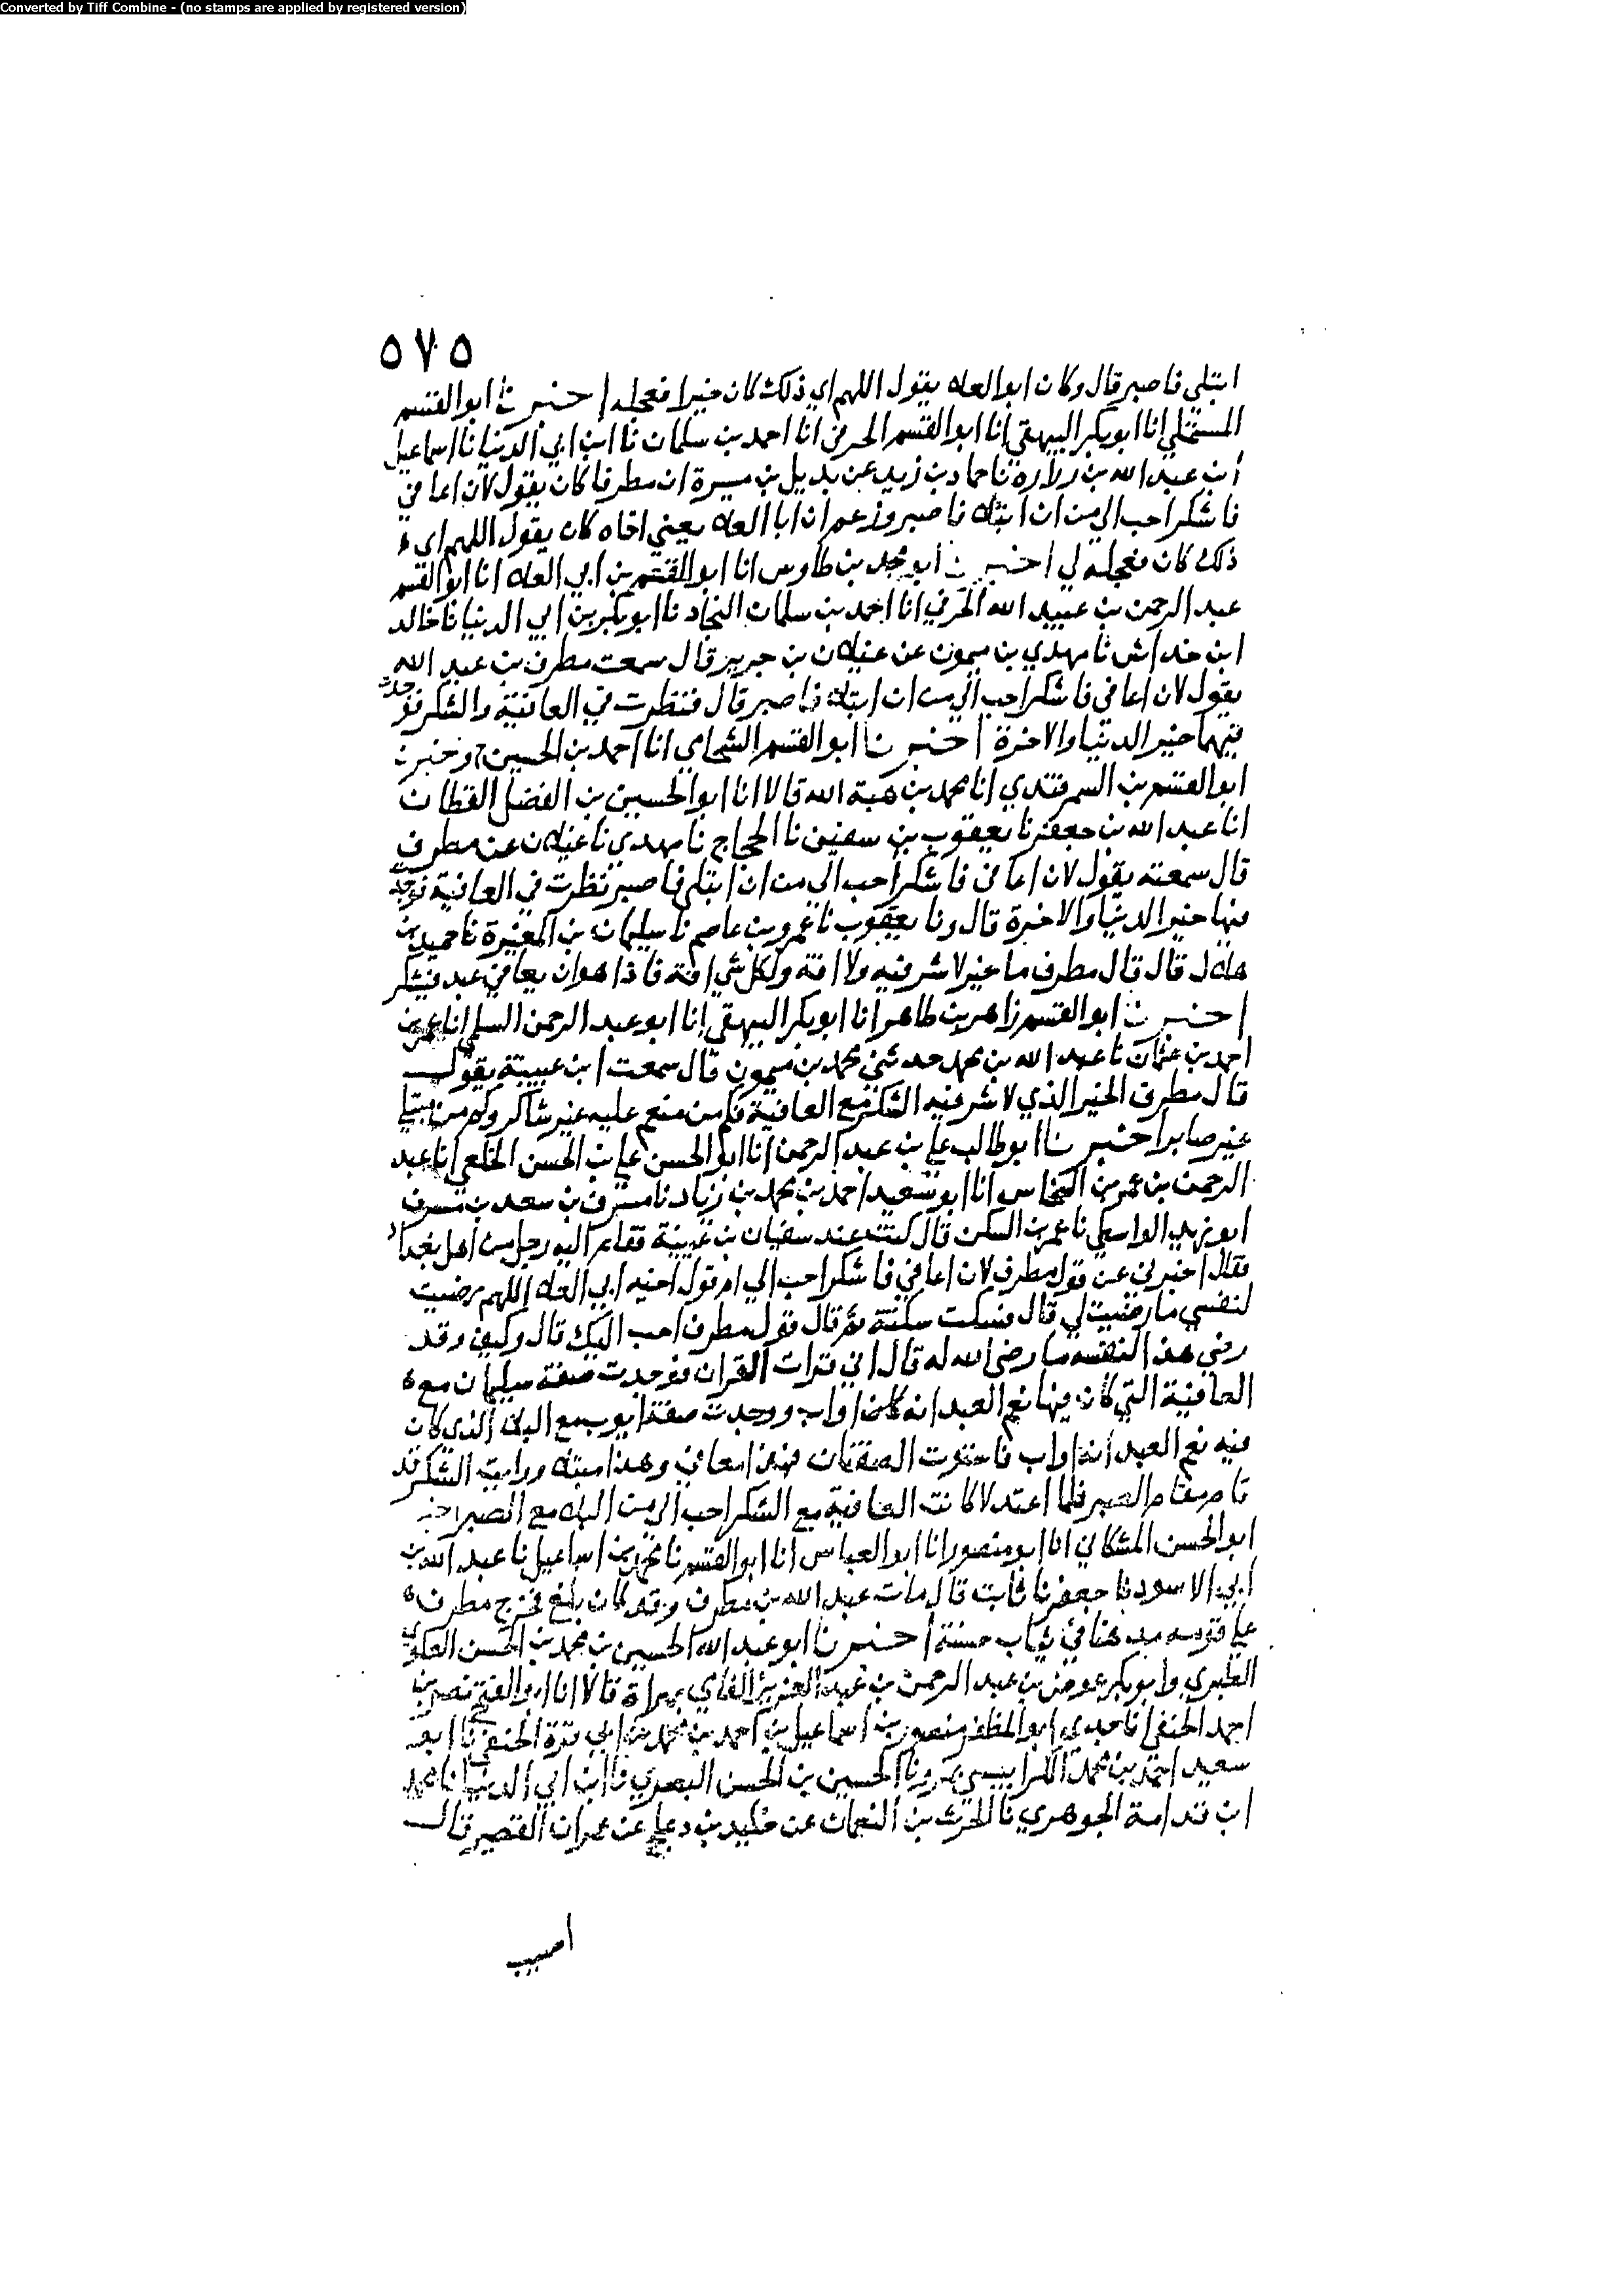 Converted by Tiff Combine - (no stamps are applied by registered version)
٥٧٥
ابتلى فاصبر قال وكان ابو العلاء يقول اللهم اي ذلك كان خيرا فعجله اخبرنا ابو القسم
المستملي انا ابو بكر البيهقي انا ابو القسم الحرفي انا احمد بن سلمان نا ابن ابي الدنيا نا اسماعيل
ابن عبد الله بن زرارة نا حماد بن زيد عن بديل بن ميسرة ان مطرفا كان يقول لان اعافى
فاشكر احب الي من ان ابتلى فاصبر وزعم ان ابا العلاء يعني اخاه كان يقول اللهم اي
ذلك كان فعجله لي اخبرنا ابو محمد بن طاوس انا ابو القسم بن ابي العلاء انا ابو القسم
عبد الرحمن بن عبيد الله الحرفي انا احمد بن سلمان النجاد نا ابو بكر بن ابي الدنيا نا خالد
ابن خداش نا مهدي بن ميمون عن غيلان بن جرير قال سمعت مطرف بن عبد الله
يقول لان اعافى فاشكر احب الي من ان ابتلى فاصبر قال فنظرت في العافية والشكر فوجدت
فيهما خير الدنيا والاخرة اخبرنا ابو القسم الشحامي انا احمد بن الحسين ح واخبرنا
ابو القسم بن السمرقندي انا محمد بن هبة الله قالا انا ابو الحسين بن الفضل القطان
انا عبد الله بن جعفر نا يعقوب بن سفين نا الحجاج نا مهدي نا غيلان عن مطرف
قال سمعته يقول لان اعافى فاشكر احب الي من ان ابتلى فاصبر نظرت في العافية فوجدت
فيها خير الدنيا والاخرة قال ونا يعقوب نا عمرو بن عاصم نا سليمان بن المغيرة نا حميد بن
هلال قال قال مطرف ما خير لا شر فيه ولا افة ولكل شي افة فاذا هو ان يعافى عبد فيشكر
اخبرنا ابو القسم زاهر بن طاهر انا ابو بكر البيهقي انا ابو عبد الرحمن السلمي انا عمر بن
احمد بن عثمان نا عبد الله بن محمد حدثني محمد بن ميمون قال سمعت ابن عيينة يقول
قال مطرف الخير الذي لا شر فيه الشكر مع العافية فكم من منعم عليه غير شاكر وكم من مبتلى
غير صابر اخبرنا ابو طالب علي بن عبد الرحمن انا ابو الحسن علي بن الحسن الخلعي انا عبد
الرحمن بن عمر بن النخاس انا ابو سعيد احمد بن محمد بن زياد نا مشرف بن سعد بن مشرف
ابو زيد الواسطي نا عمر بن السكن قال كنت عند سفيان بن عيينة فقام اليه رجل من اهل بغداد
فقال اخبرني عن قول مطرف لان اعافى فاشكر احب الي ام قول اخيه ابي العلاء اللهم رضيت
لنفسي ما رضيت لي قال فسكت سكتة ثم قال قول مطرف احب اليك قال وكيف وقد
رضي هذا لنفسه ما رضى الله له قال اني قرات القران فوجدت صفة سليمان مع
العافية التي كان فيها نعم العبد انه اواب ووجدت صفة ايوب مع البلاء الذي كان
فيه نعم العبد انه اواب فاستوت الصفتان فهذا معافى وهذا مبتلى ورايت الشكر قد
قام مقام الصبر فلما اعتدلا كانت العافية مع الشكر احب الي من البلاء مع الصبر اخبرنا
ابو الحسن المشكاني انا ابو منصور انا ابو العباس انا ابو القسم نا محمد بن اسماعيل نا عبد الله بن
ابي الاسود نا جعفر نا ثابت قال مات عبد الله بن مطرف وقد كان بلغ فخرج مطرف
على قومه في ثياب حسنة اخبرنا ابو عبد الله الحسين بن محمد بن الحسن العلوي
الطبري وابو بكر عوض بن عبد الرحمن بن عبد العزيز بهراة قالا انا ابو الفتح نصر بن
احمد الحنفي انا جدي ابو المظفر منصور بن اسماعيل بن احمد بن محمد بن ابي قرة الحنفي نا ابو
سعيد احمد بن محمد الكرابيسي بمرو نا الحسين بن الحسن البصري نا ابن ابي الدنيا انا محمد
ابن قدامة الجوهري نا الحرث بن النعمان عن خليد بن دعلج عن عمران القصير قال
اصيب